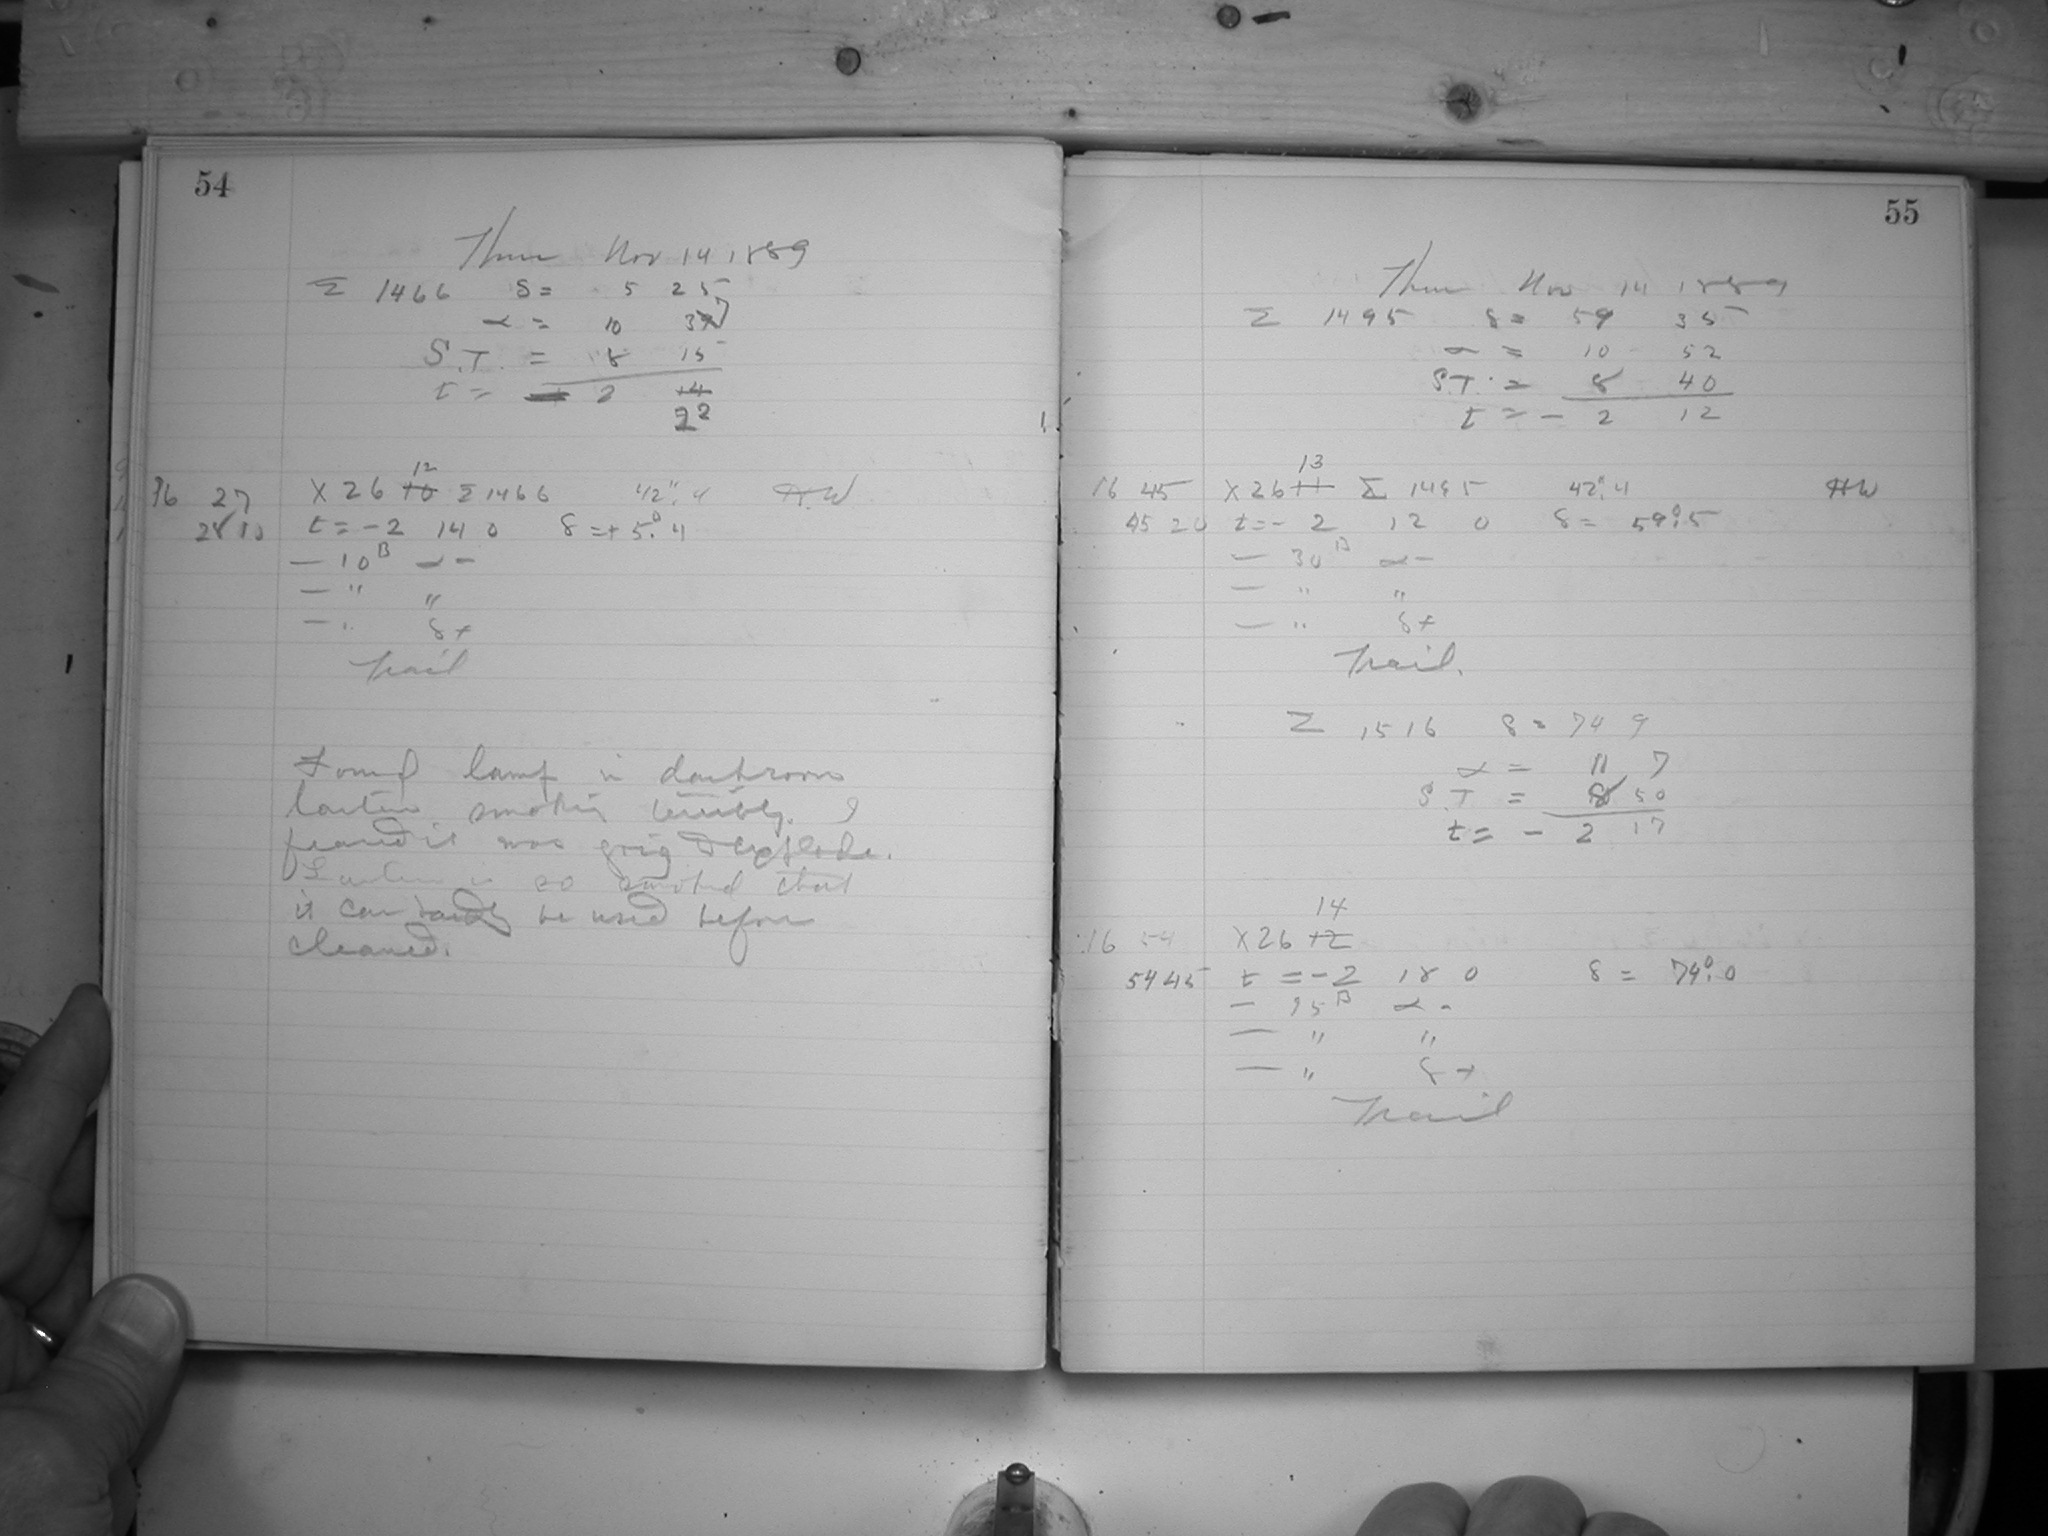 54
Thur Nov 14 1889
Σ 1466 δ = 5 25
α = 10 37
S.T. = 8 15
t = - 2 14
22
12
16 27 X 26 10 Σ 1466 42".4 H.W
28 10 t = - 2 14 0 δ = + 5°.4
— 10ᴮ α -
— " "
— " δ +
Trail
Found lamp in darkroom
lantern smoking terribly. I
feared it was going to explode.
Lantern is so smoked that
it can hardly be used before
cleaned.
55
Thur Nov 14 1889
Σ 1495 δ = 59 35
α = 10 52
S.T. = 8 40
t = - 2 12
13
16 45 X 26 11 Σ 1495 42".4 HW
45 20 t = - 2 12 0 δ = 59°.5
— 30ᴮ α -
— " "
— " δ +
Trail.
Σ 1516 δ = 74 9
α = 11 7
S.T = 8 50
t = - 2 17
14
16 54 X 26 12
54 45 t = - 2 18 0 δ = 74°.0
— 35ᴮ α -
— " "
— " δ +
Trail